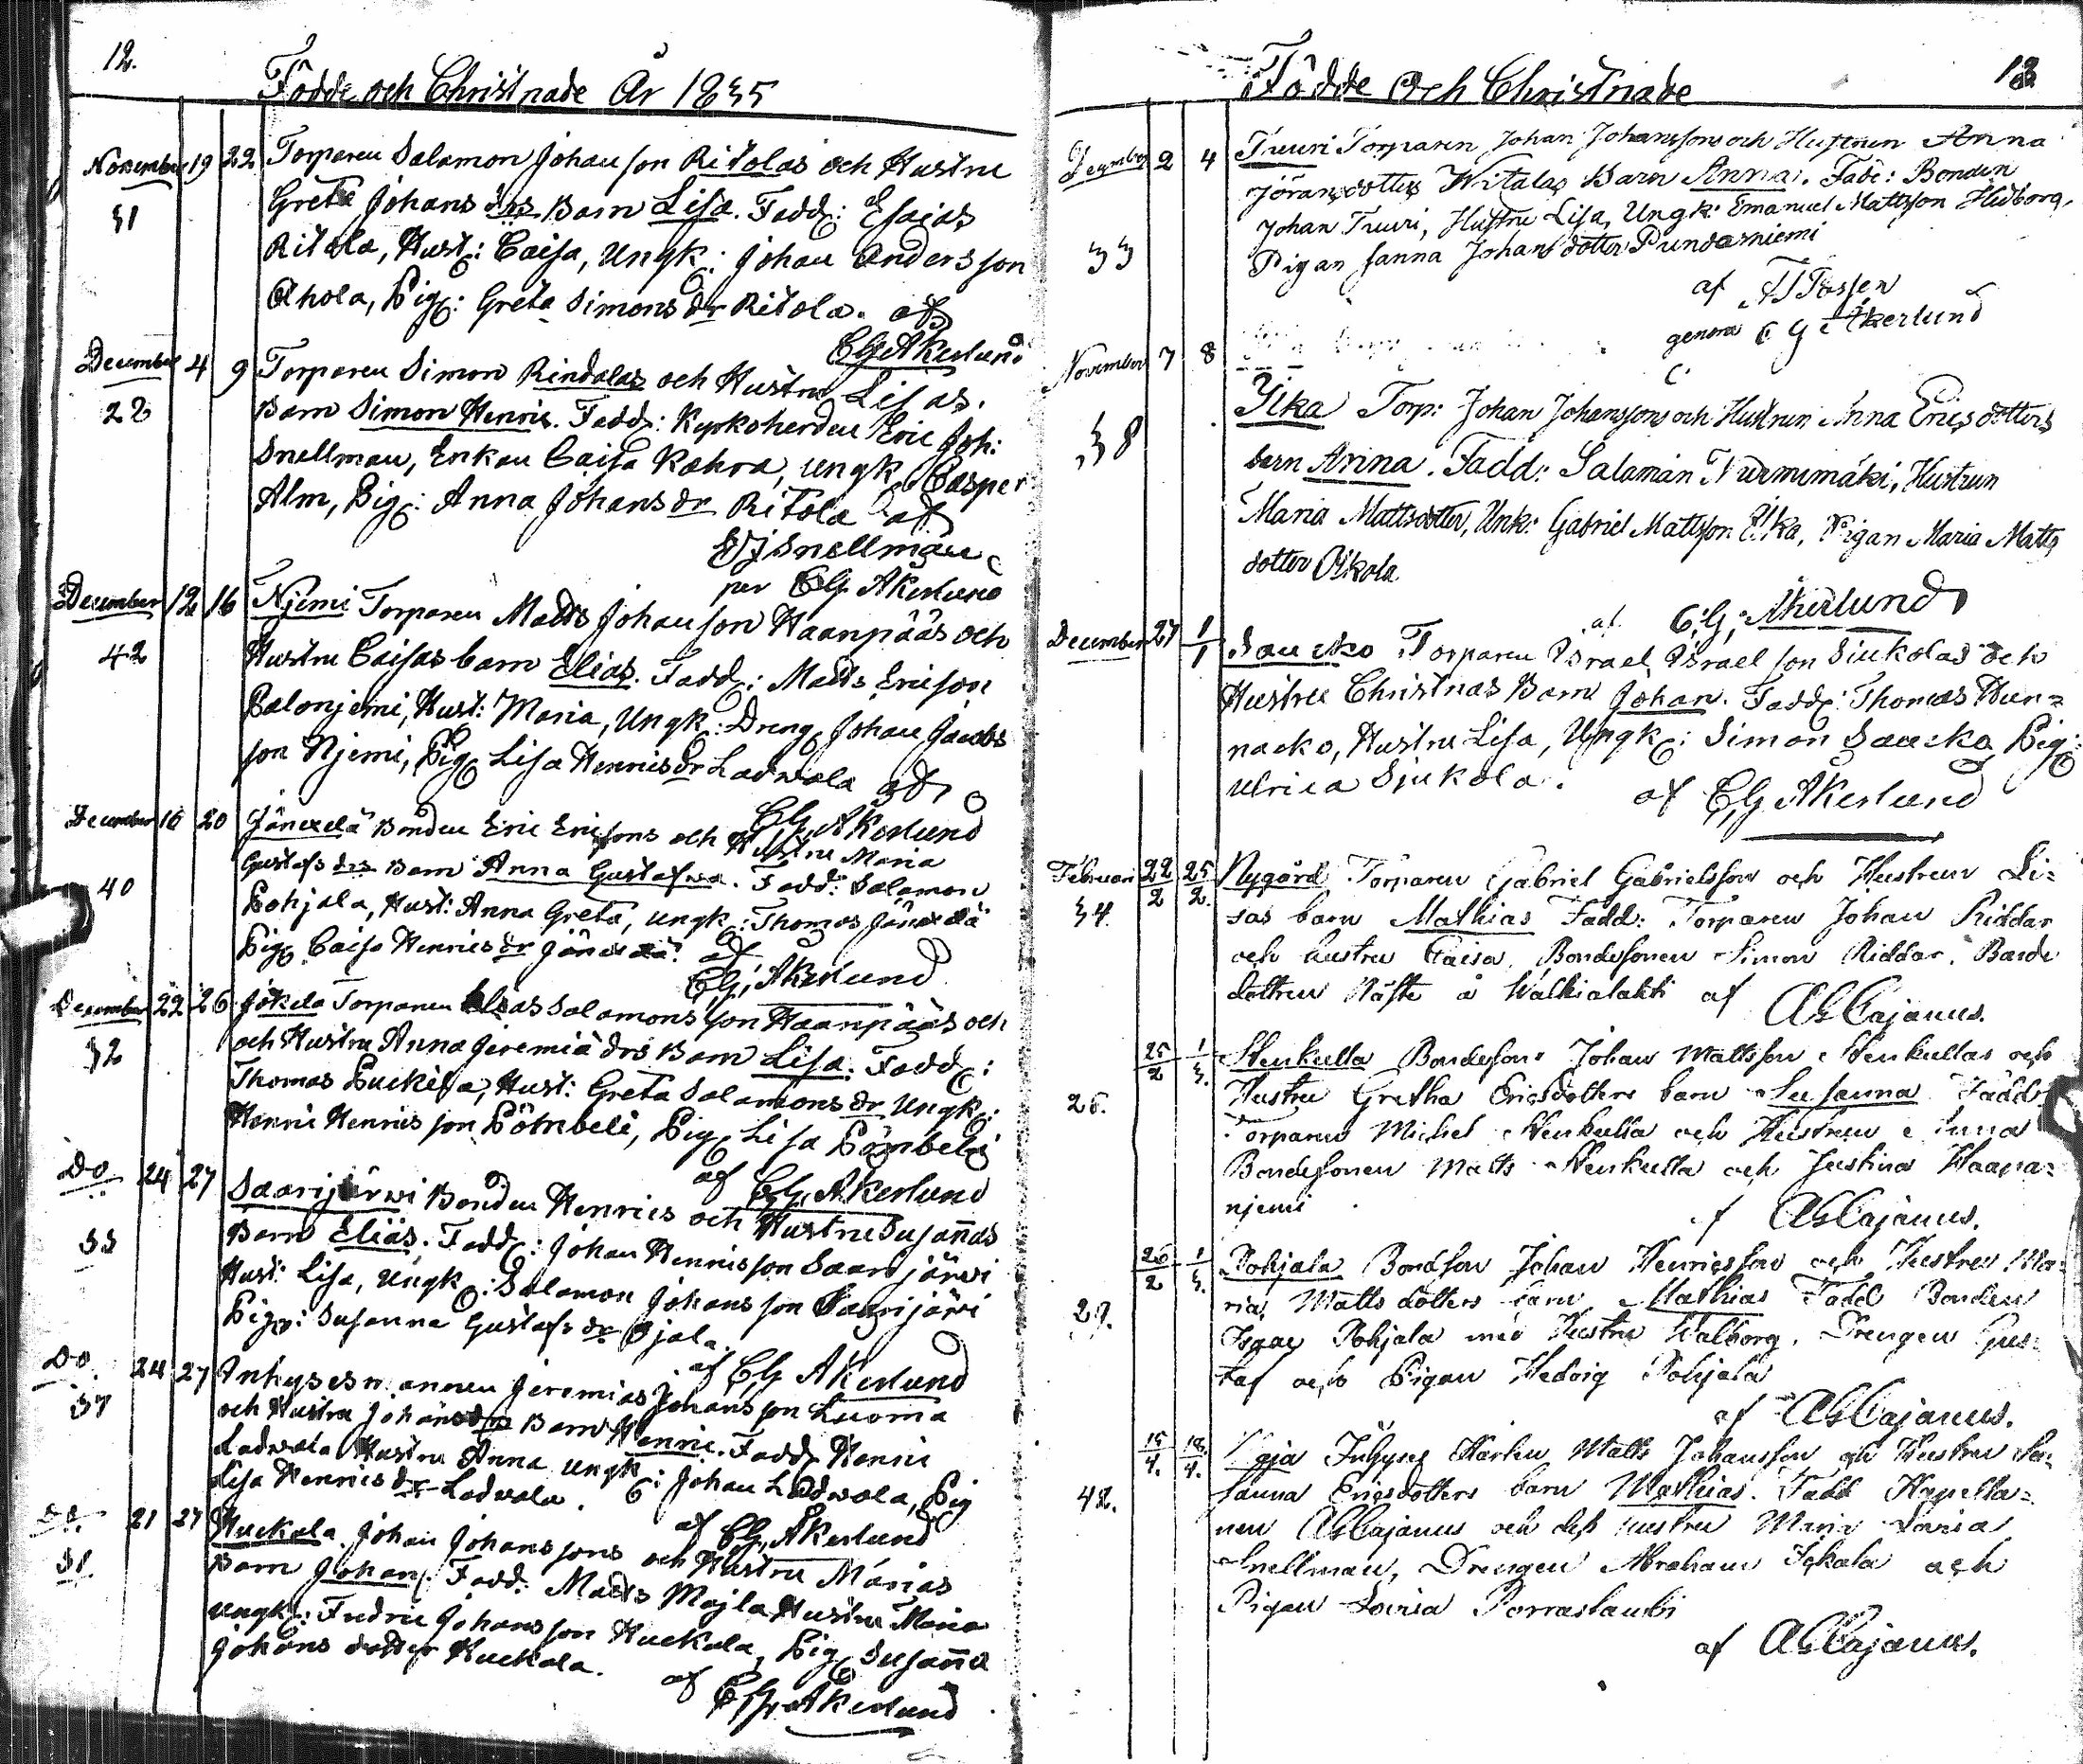 12.
Födde och Christnade År 1835
November 19 22 Torparen Salamon Johansson Ritolas och Hustru
31 Greta Johans drs Barn Lisa. Fadd: Esaias
Ritola, Hust: Caisa, Ungk: Johan Andersson
Ahola, Pig: Greta Simons dr Ritola. af
CG Åkerlund
December 4 9 Torparen Simon Rindalas och Hustru Lisas.
22 Barn Simon Henric. Fadd: Kyrkoherden Eric Joh:
Snellman, Enkan Caisa Kahra, Ungk Casper
Alm, Pig: Anna Johans dr Ritola af
EJ Snellman
per CG Åkerlund
December 12 16 Njemi Torparen Matts Johansson Haanpääs och
42 Hustru Caisas barn Elias. Fadd: Matts Ericson
Palonjemi, Hust: Maria, Ungk: Dreng Johan Jacobs
son Njemi, Pig Lisa Henrics dr Ladwala af
CG Åkerlund
December 16 20 Jänexelä Bonden Eric Ericsons och Hustru Maria
Gustafs drs Barn Anna Gustafwa. Fadd: Salomon
40 Pohjala, Hust: Anna Greta, Ungk: Thomas Jänexelä
Pig Caisa Henrics dr Jänexelä af
CG Åkerlund
December 22 26 Jokela Torparen Elias Salomonsson Haanpääs och
32 och Hustru Anna Jeremiä drs Barn Lisa. Fadd:
Thomas Puckila, Hust: Greta Salamons dr Ungk:
Henric Henricsson Pömbeli, Pig Lisa Pömbeli
af CG Åkerlund
Do 24 27 Saarijärwi Bonden Henrics och Hustru Susannas
33 Barn Elias. Fadd: Johan Henricsson Saarijärwi
Hust: Lisa, Ungk: Salomon Johansson Saarijärwi
Pig: Susanna Gustafs dr Ojala.
af CG Åkerlund
Do 24 27 Inhysesmannen Jeremias Johansson Luoma
37 och Hustru Johans drs Barn Henric. Fadd Henric
Ladwala Hustru Anna Ungk: Johan Ladwala, Pig
Lisa Henrics dr Ladwala.
af CG Åkerlund
Do 21 27 Huckala Johan Johanssons och Hustru Marias
31 Barn Johan. Fadd: Matts Majla Hustru Maria
Ungk: Fredric Johansson Huckala, Pig Susanna
Johans dotter Huckala.
af CG Åkerlund
Födde och Christnade
13
December 2 4 Truuri Torparen Johan Johanssons och Hustrun Anna
Jöransdotters Witalas Barn Anna. Fade: Bonden
Johan Truuri, Hustru Lisa, Ungk: Emanuel Mattsson Hidborg,
33 Pigan Sanna Johansdotter Pundarniemi
af
genom C G Åkerlund
November 7 8
Ylka Torp: Johan Johanssons och Hustrun Anna Ericsdotters
38 barn Anna. Fadd: Salaman Nurmimäki, Hustrun
Maria Mattsdotter, Unk: Gabriel Mattsson Ylka, Pigan Maria Matts
dotter Pikola
af C.G. Åkerlund
December 27 1/1 Saucko Torparen Israel Israelsson Siukolas och
Hustru Christinas Barn Johan. Fadd: Thomas Hun=
nacko, Hustru Lisa, Ungk: Simon Saucko, Pig:
Ulrica Sjukola.
af CG Åkerlund
Februari 22/2 25/2. Nygård Torparen Gabriel Gabrielsson och Hustrun Li=
34. sas barn Mathias Fadd: Torparen Johan Riddar
och hustru Caisa, Bondesonen Simon Riddar, Bonde
dottren Näste å Walkialahti af
AGCajanus.
25/2 1/3. Henkulla Bondeson Johan Mattsson Henkullas och
26. Hustru Gretha Ericsdotters barn Susanna Fadd
Torparen Michel Henkulla och Hustrun Anna
Bondesonen Matts Henkulla och Justina Haapa=
njemi
af AGCajanus.
26/2 1/3. Pohjala Bondson Johan Henricsson och Hustru Ma=
29. ria Mattsdotters barn Mathias Fadd Bonden
Isaac Pohjala med Hustru Walborg, Drengen Gus=
taf och Pigan Hedvig Pohjala
af AGCajanus.
15/4. 18/4. Inhyses Karlen Matts Johansson och Hustru Su=
42. sanna Ericsdotters barn Mathias. Fadd Kapella=
nen AGCajanus och dess hustru Maria Lovisa
Snellman, Drengen Abraham Jokala och
Pigan Lovisa Porraslambi
af AGCajanus.